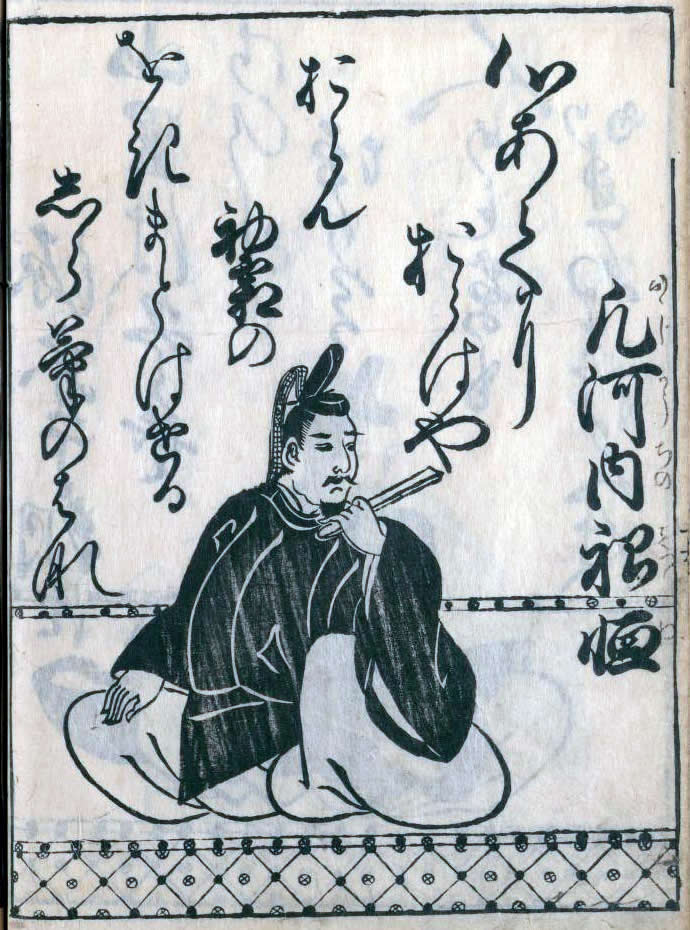 凡河内躬恒
心あてに
おらはや
おらん
初霜の
をきまとはせる
しら菊のはな